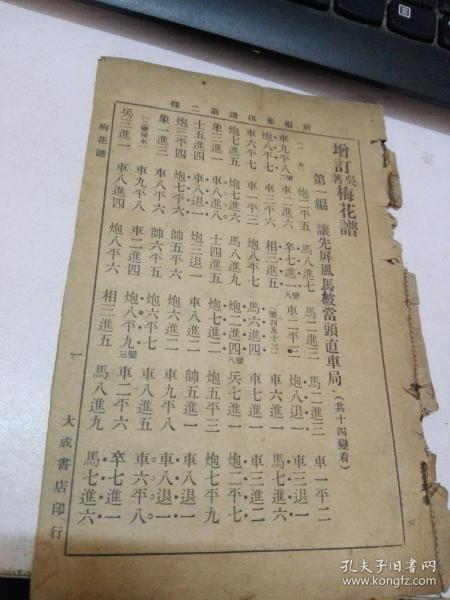 新編象棋譜第二種
增訂吳著梅花譜
第一編 讓先屏風馬破當頭直車局(共十四變看)
炮二平五 馬八進七 馬二進三 馬二進三 車一平二
車九平八 車二進六 卒七進一變九 車二平三 炮八退一 車三退一
炮八平七 車三平六 相三進五 (變四及十三) 車七進一 馬七進六
車六平七 車一平三 炮八平七 馬六進四 車七進一 車三進二
炮七進五 馬八進九 炮二進四變八 兵七進一 炮二平七
象三進一 車八進八 士四進五 炮七進二 炮五平三 炮七平九
士五進四 車八退一 炮三退一 車八進二 車九平八 車八退一
炮三平四 炮七平六 帥五平六 炮六進二 車八進五 車八退一
象一進三 車九平八 帥六平五 炮六平七 車六平八
車二進四 炮八平九變三 車二平六 卒七進一
兵三進一 車八進四 炮八平六 相三進五 馬八進九 馬七進六
梅花譜
一
大成書店印行
孔夫子旧书网
www.kongfz.com